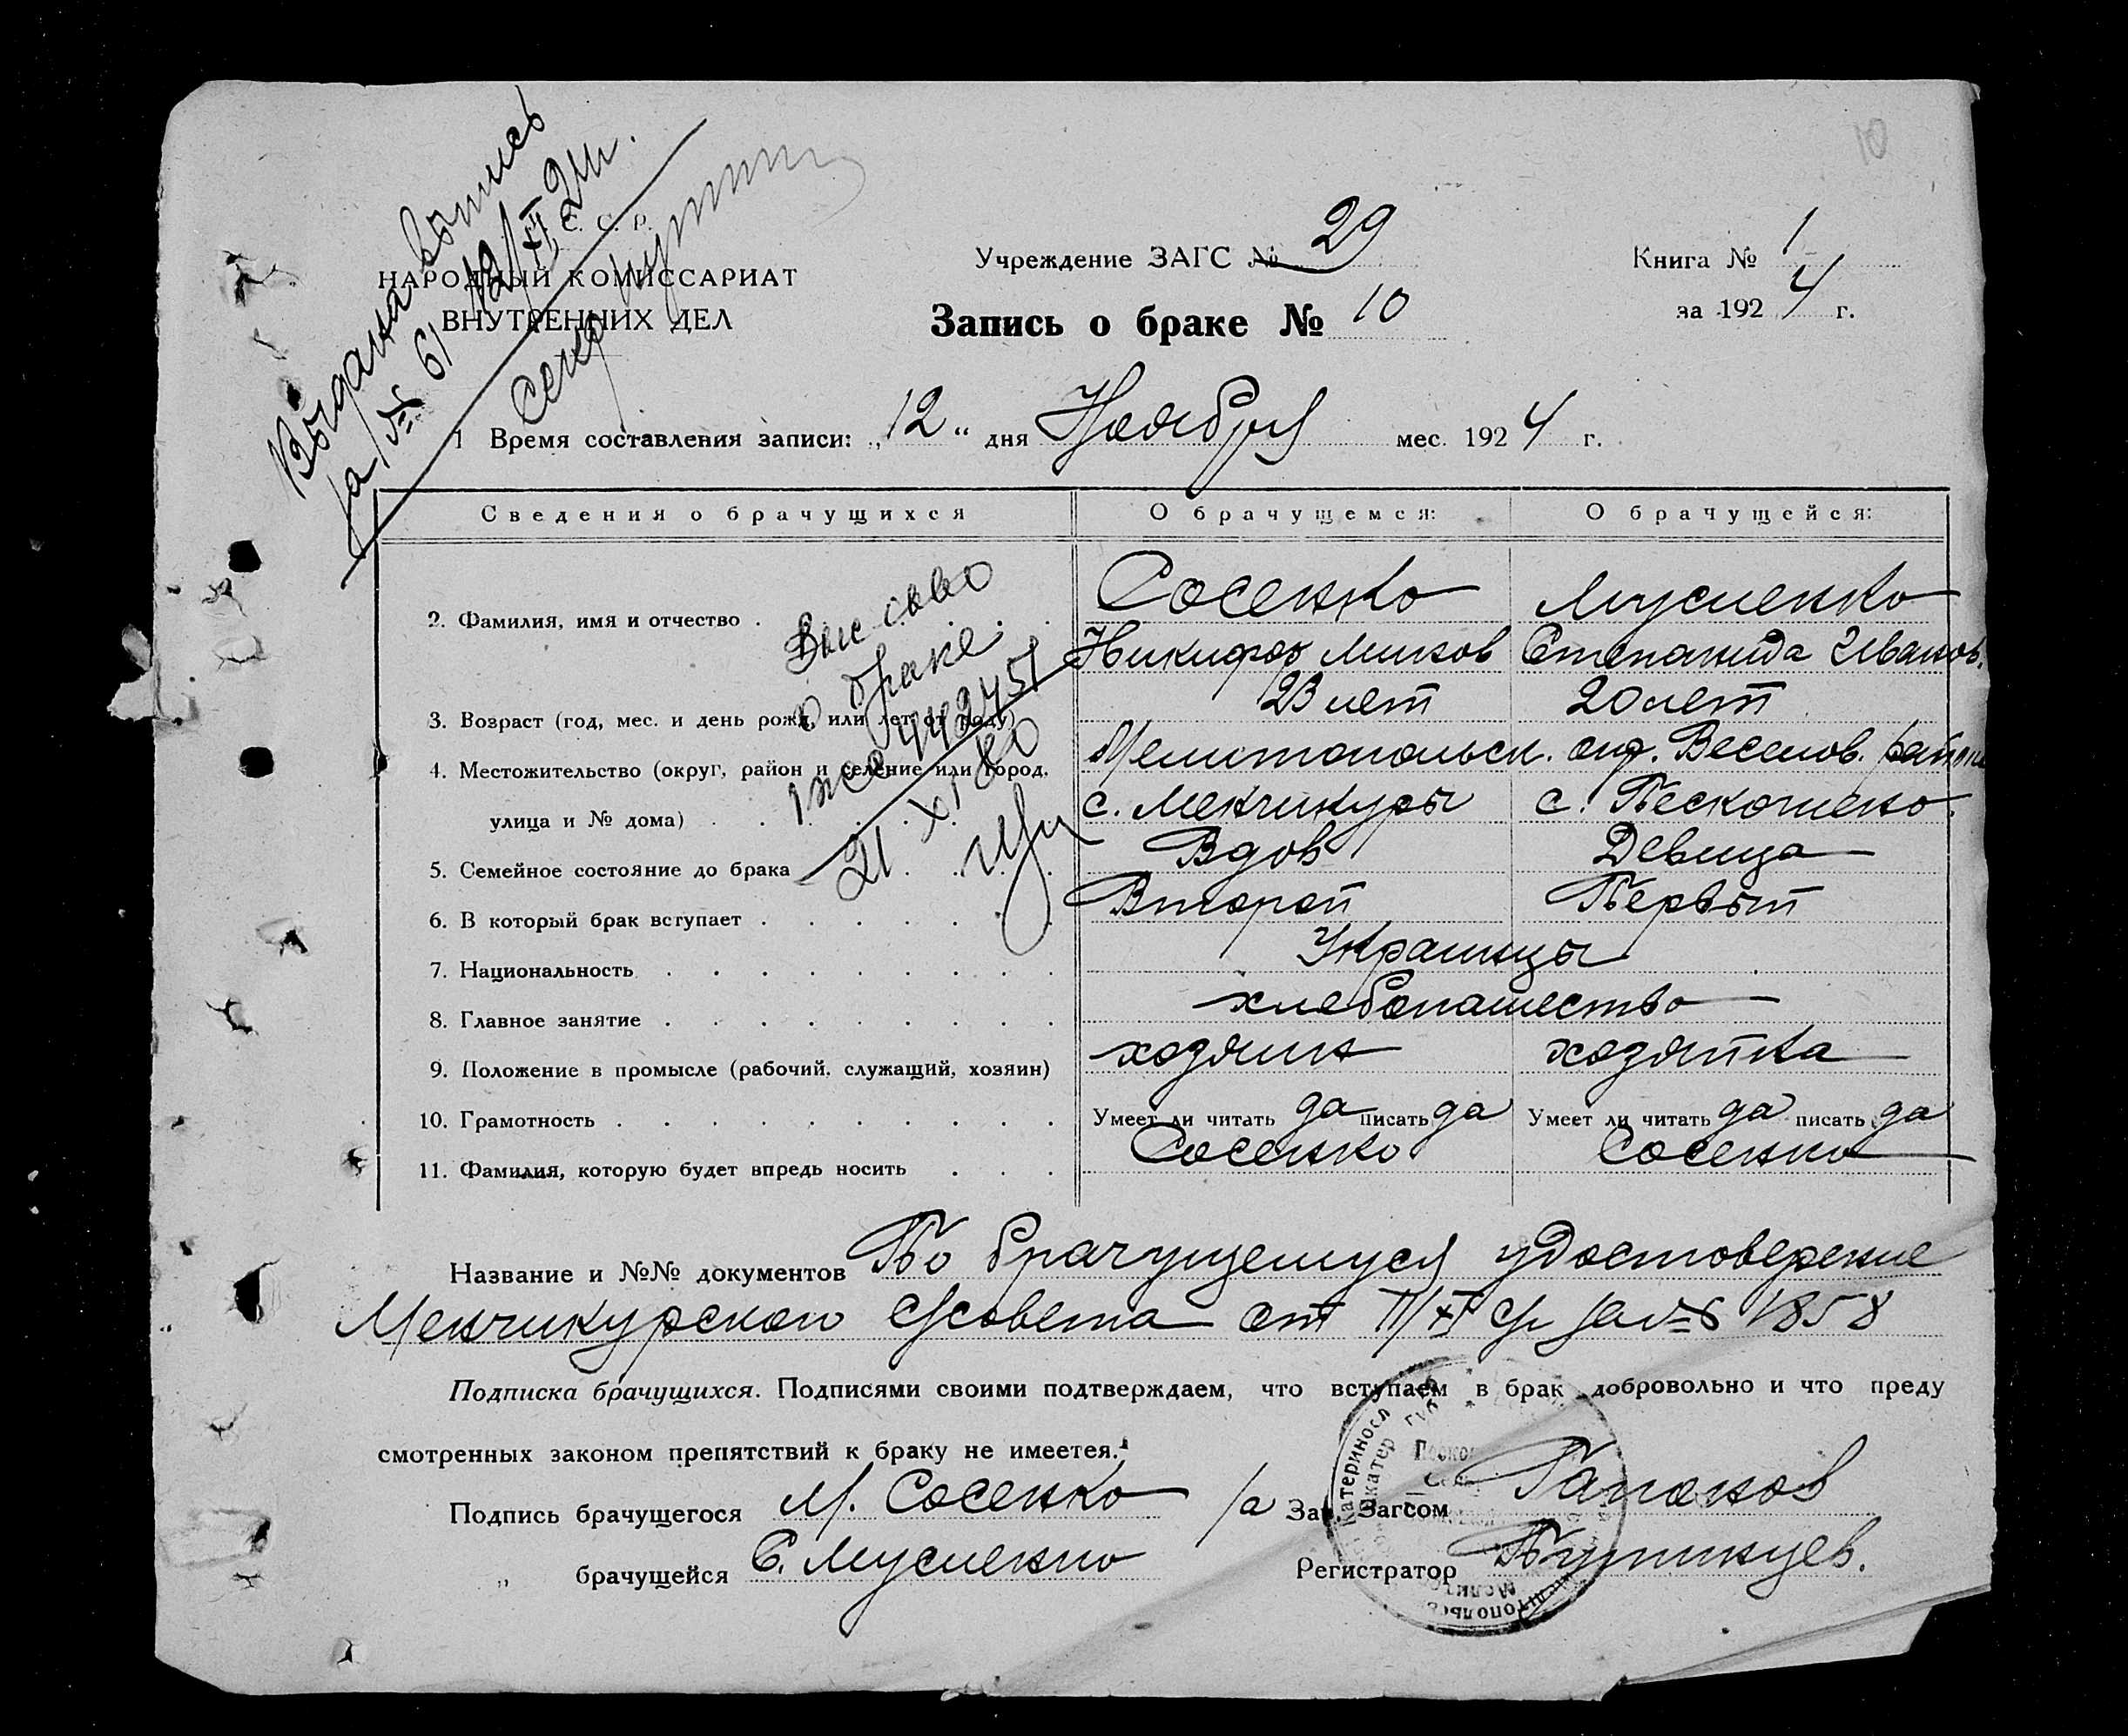 10
Выдана выпись
за № 61 12/XI 24 г.
С. С. Р.
НАРОДНЫЙ КОМИССАРИАТ
ВНУТРЕННИХ ДЕЛ
Учреждение ЗАГС № 29
Книга № 1
Запись о браке № 10
за 1924 г.
1 Время составления записи: „12“ дня Ноября мес. 1924 г.
Сведения о брачущихся О брачущемся: О брачущейся:
2. Фамилия, имя и отчество Сосенко Мусиенко
Никифор Минов Степанида Иванов.
3. Возраст (год, мес. и день рожд. или лет от роду) 23 лет 20 лет
4. Местожительство (округ, район и селение или город, Мелитопольск. окр. Веселов. района
улица и № дома) с. Менчикуры с. Пескошено.
5. Семейное состояние до брака Вдов Девица
6. В который брак вступает Второй Первый
7. Национальность Украинцы
8. Главное занятие хлебопашество
9. Положение в промысле (рабочий, служащий, хозяин) хозяин хозяйка
10. Грамотность Умеет ли читать да писать да Умеет ли читать да писать да
11. Фамилия, которую будет впредь носить Сосенко Сосенко
о браке
21 XI
Название и №№ документов По брачущемуся удостоверение
Менчикурской с/совета от 11/XI за № 1858
Подписка брачущихся. Подписями своими подтверждаем, что вступаем в брак добровольно и что преду
смотренных законом препятствий к браку не имеется.
Подпись брачущегося М. Сосенко За Зав. Загсом Гапонов
„ брачущейся С. Мусиенко Регистратор